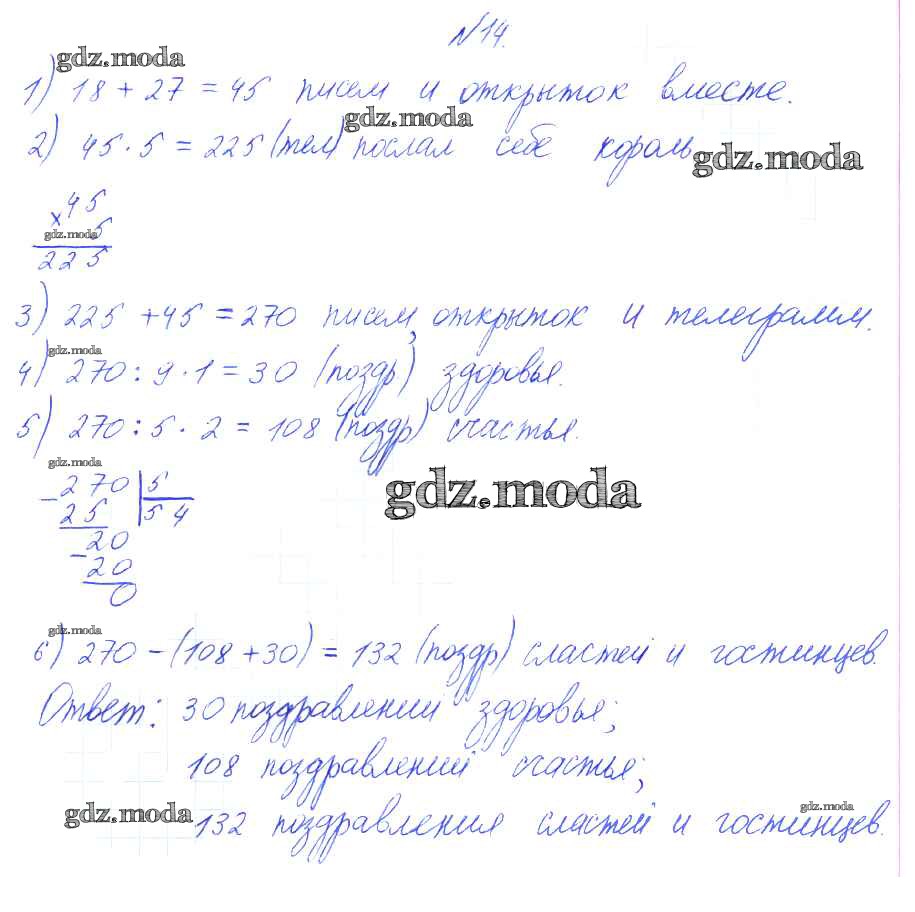 №14.
gdz.moda
1) 18 + 27 = 45 писем и открыток вместе.
gdz.moda
2) 45 · 5 = 225 (тел) послал себе король
gdz.moda
× 45
gdz.moda 5
225
3) 225 + 45 = 270 писем, открыток и телеграмм.
gdz.moda
4) 270 : 9 · 1 = 30 (поздр) здоровья.
5) 270 : 5 · 2 = 108 (поздр) счастья.
gdz.moda
- 270 | 5
25 | 54
- 20
20
0
gdz.moda
gdz.moda
6) 270 - (108 + 30) = 132 (поздр) сластей и гостинцев.
Ответ: 30 поздравлений здоровья;
108 поздравлений счастья;
gdz.moda
gdz.moda
132 поздравления сластей и гостинцев.